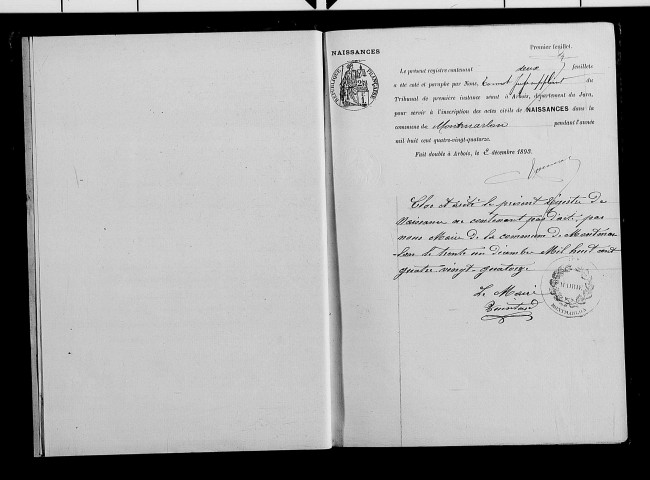 NAISSANCES
Premier feuillet.
RÉPUBLIQUE FRANÇAISE
Le présent registre contenant deux feuillets
a été coté et paraphé par Nous, juge suppléant du
Tribunal de première instance séant à Arbois, département du Jura,
pour servir à l'inscription des actes civils de NAISSANCES dans la
commune de Montmarlon pendant l'année
mil huit cent quatre-vingt-quatorze.
Fait double à Arbois, le 2 décembre 1893.
Clos et arrêté le présent registre de
Naissance ne contenant pas d'acte, par
nous Maire de la commune de Montmar-
lon le trente un décembre Mil huit cent
quatre vingt-quatorze
Le Maire
MAIRIE
MONTMARLON